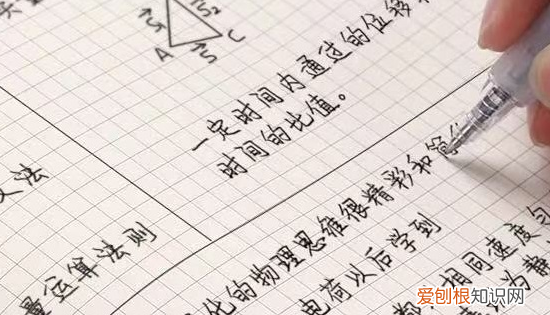 A
C
S
S₂
一定时间内通过的位移
时间的比值。
义法
量运算法则
化的物理思维很精彩和简
电荷以后学到
都,相同速度匀
为静
爱创根知识网